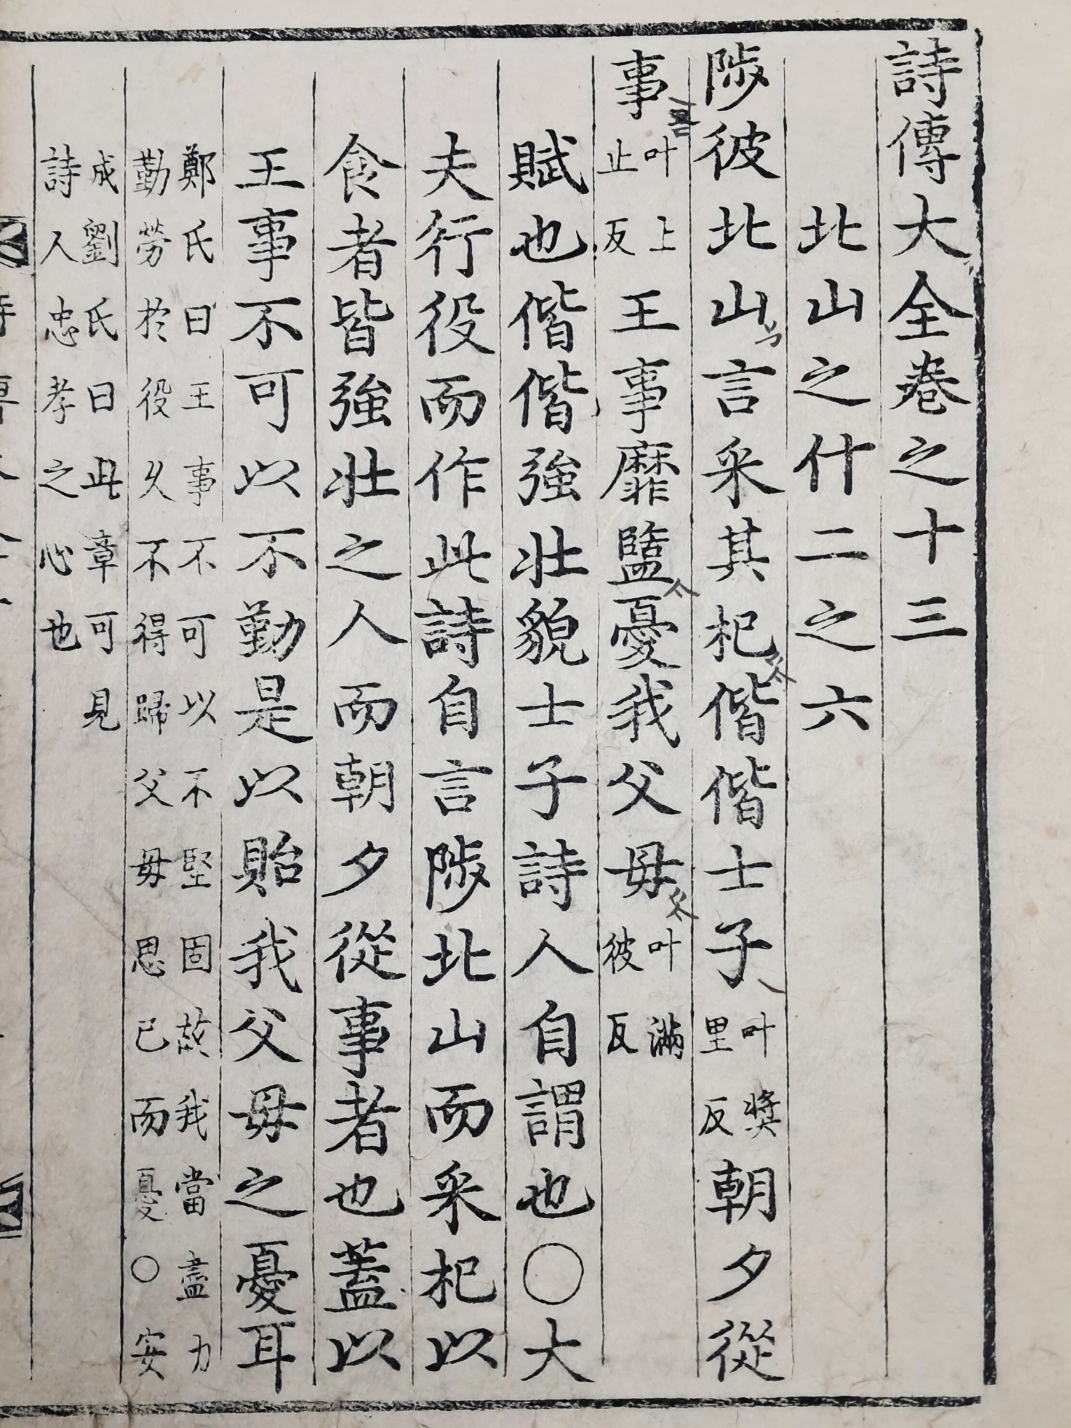 詩傳大全卷之十三
北山之什二之六
陟彼北山言采其杞偕偕士子叶獎里反朝夕從
事叶上止反王事靡盬憂我父母叶滿彼反
賦也偕偕強壯貌士子詩人自謂也○大
夫行役而作此詩自言陟北山而采杞以
食者皆強壯之人而朝夕從事者也蓋以
王事不可以不勤是以貽我父母之憂耳
鄭氏曰王事不可以不堅固故我當盡力
勤勞於役久不得歸父母思己而憂○安
成劉氏曰此章可見
詩人忠孝之心也